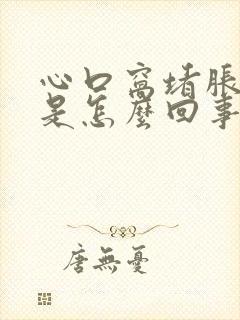 心口窩堵脹
是怎麼回事
唐無憂